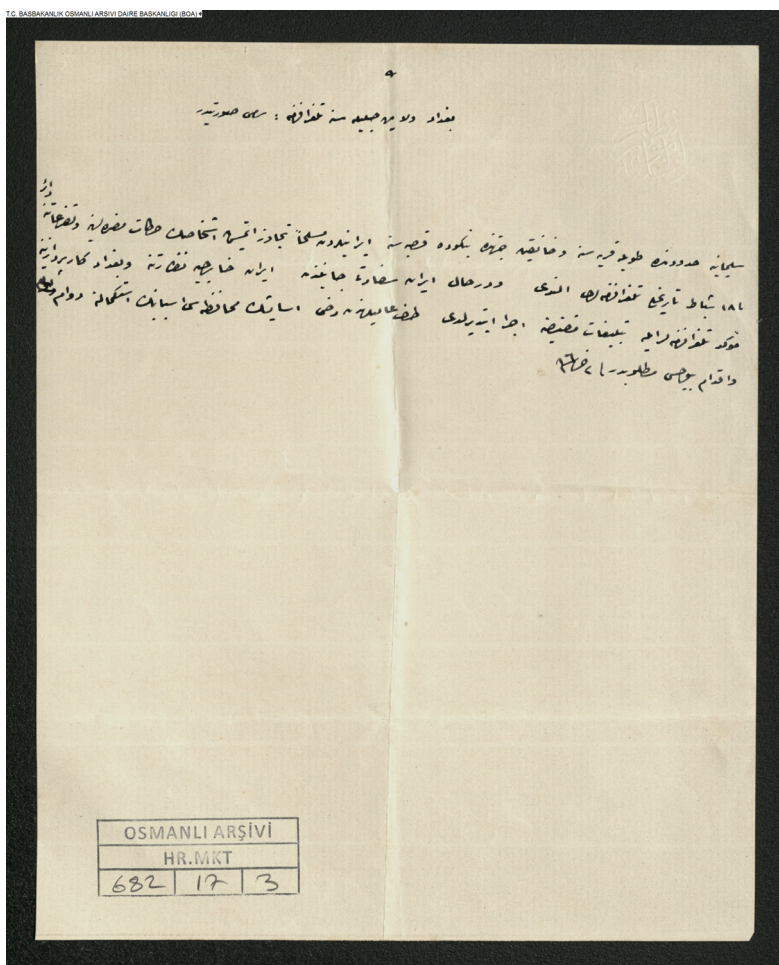 T.C. BASBAKANLIK OSMANLI ARSIVI DAIRE BASKANLIGI (BOA)
بغداد ولايت جليله سنه تلغرافنامه
سليمانيه حدودنده طويله قريه سنه وخانقين جهتنده قصبه سنه ايرانيلردن مسلحاً تجاوز ايتمش اشخاصك حركات
١٨ شباط تاريخلى تلغرافنامه لرى الندى درحال ايران سفارتى جانبندن ايران خارجيه نظارتنه وبغداد كارپردازينه
مؤكد تلغرافنامه لرله تبليغات مقتضيه اجرا ايتديرلدى طرف عاليلرندن دخى اسايشك محافظه سى اسبابنك استكمالنه دوام
واقدام بيورلمسى مطلوبدر
OSMANLI ARŞİVİ
HR.MKT
682 17 3